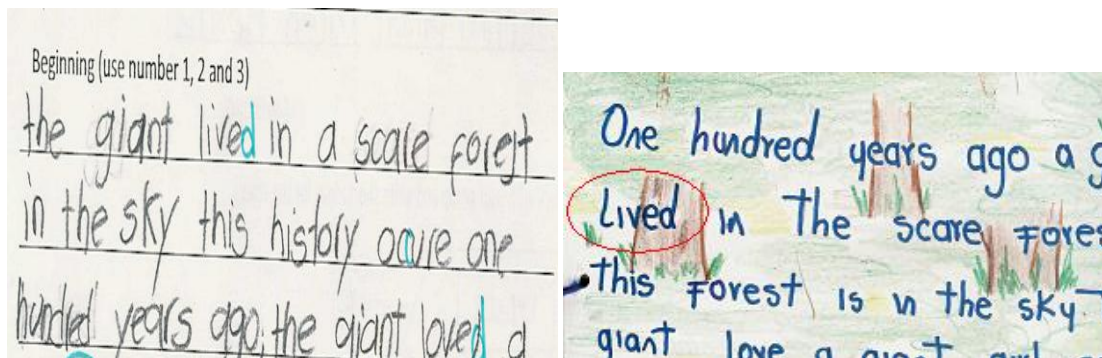 Beginning (use number 1, 2 and 3)
the giant lived in a scare forest
in the sky this history occure one
hundred years ago. the giant loved a
One hundred years ago a g
Lived in the scare Fores
this Forest is in the sky.
giant love a giant girl